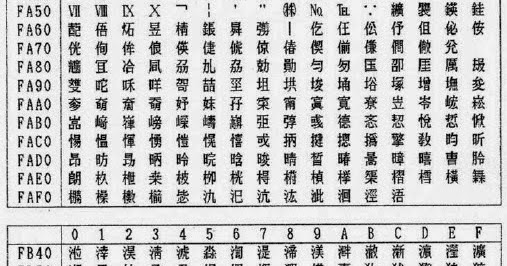 FA50 Ⅶ Ⅷ Ⅸ Ⅹ ￢ ￤ ＇ ＂ ㈱ № ℡ ∵ 纊 褜 鍈 銈
FA60 蓜 俉 炻 昱 棈 鋹 曻 彅 丨 仡 仼 伀 伃 伹 佖 侒
FA70 侊 侚 侔 俍 偀 倢 俿 倞 偆 偰 偂 傔 僴 僘 兊
FA80 兤 冝 冾 凬 刕 劜 劦 勀 勛 匀 匇 匤 卲 厓 厲 叝
FA90 﨎 咜 咊 咩 哿 喆 坙 坥 垬 埈 埇 﨏 塚 增 墲 夋
FAA0 奓 奛 奝 奣 妤 妺 孖 寀 甯 寘 寬 尞 岦 岺 峵 崧
FAB0 嵓 﨑 嵂 嵭 嶸 嶹 巐 弡 弴 彧 德 忞 恝 悅 悊 惞
FAC0 惕 愠 惲 愑 愷 愰 憘 戓 抦 揵 摠 撝 擎 敎 昀 昕
FAD0 昻 昉 昮 昞 昤 晥 晗 晙 晴 晳 暙 暠 暲 暿 曺 朎
FAE0 朗 杦 枻 桒 柀 栁 桄 棏 﨓 楨 﨔 榘 槢 樰 橫 橆
FAF0 橳 橾 櫢 櫤 毖 氿 汜 沆 汯 泚 洄 涇 浯
0 1 2 3 4 5 6 7 8 9 A B C D E F
FB40 涖 涬 淏 淸 淲 淼 渹 湜 渧 渼 溿 澈 澵 濵 瀅 瀇